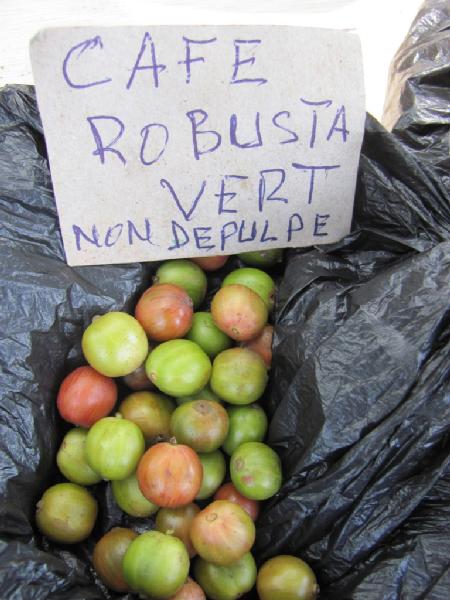 CAFE
ROBUSTA
VERT
NON DEPULPE